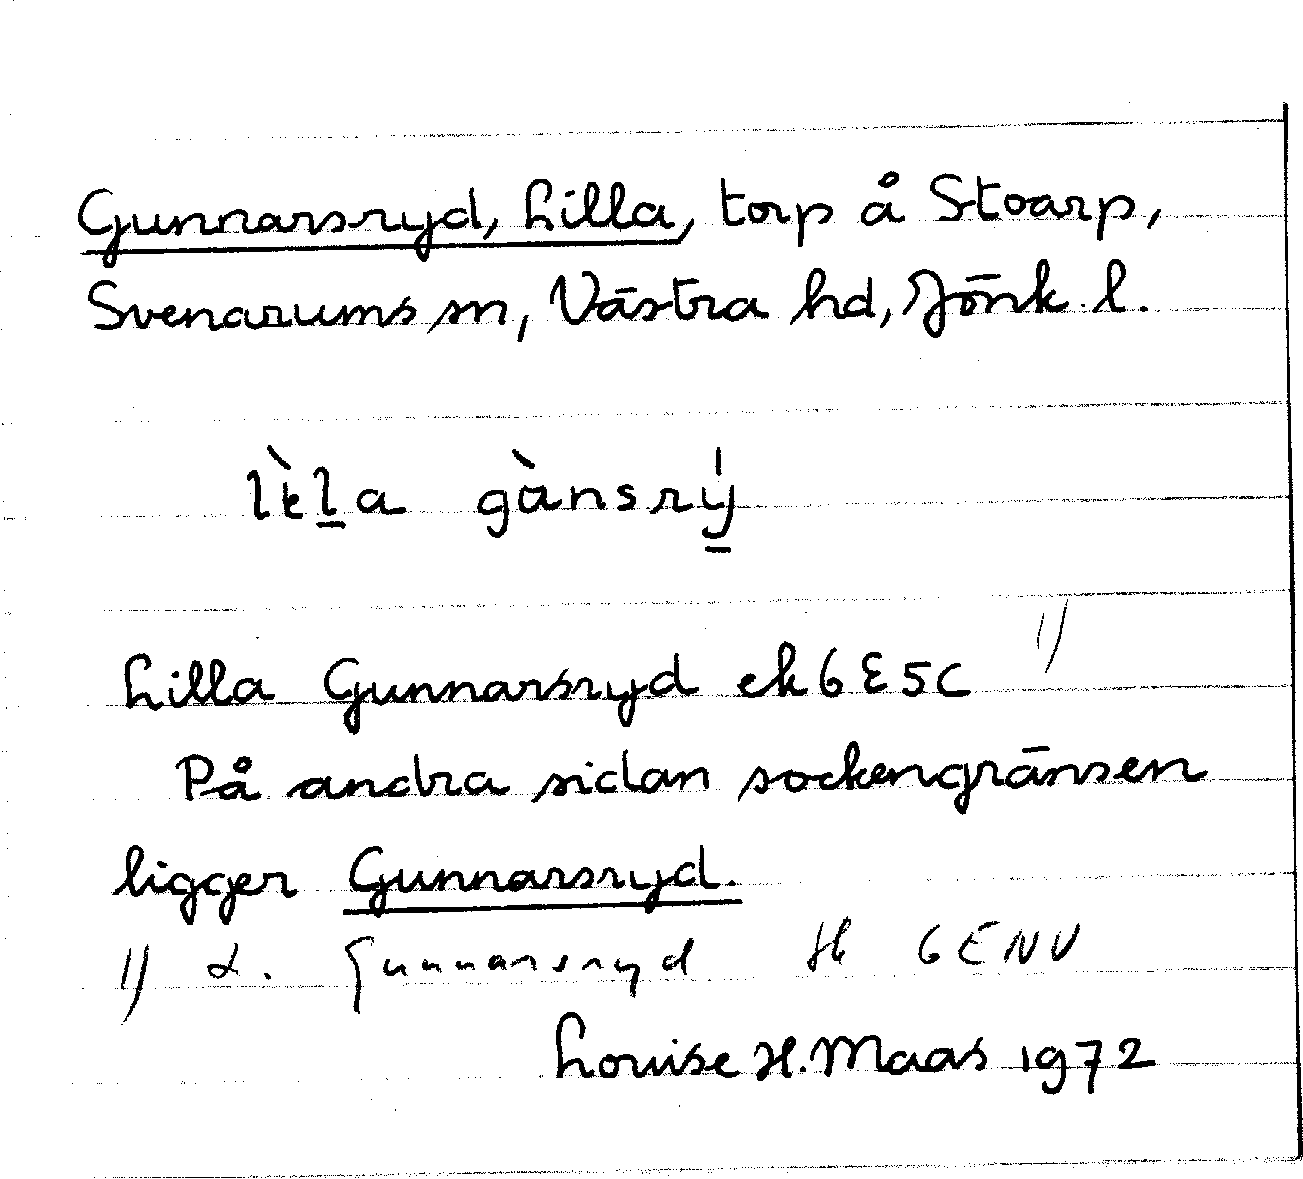 Gunnarsryd, Lilla, torp å Stoarp,
Svenarums sn, Västra hd, Jönk. l.
lὶla gànsrý
Lilla Gunnarsryd ek 6E5c 1)
På andra sidan sockengränsen
ligger Gunnarsryd.
1) L. Gunnarsryd H 6ENV
Louise H. Maas 1972